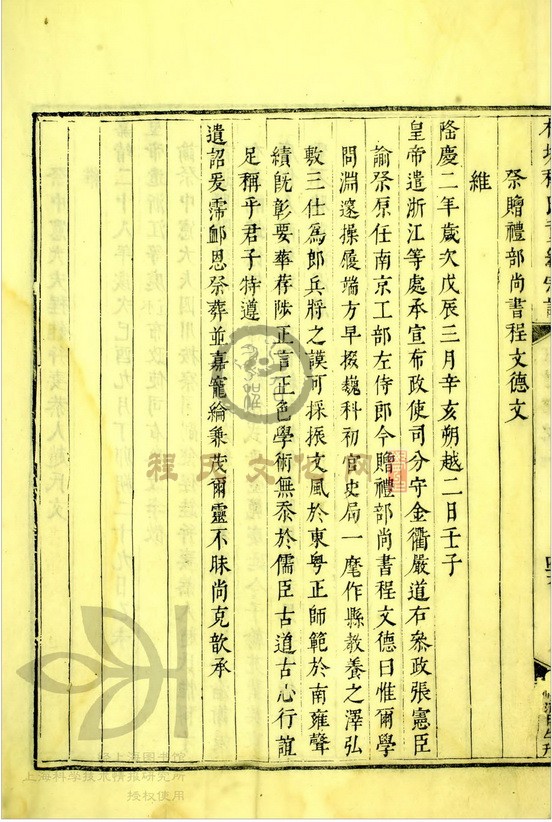 祭贈禮部尚書程文德文
維
隆慶二年歲次戊辰三月辛亥朔越二日壬子
皇帝遣浙江等處承宣布政使司分守金衢嚴道右叅政張憲臣
諭祭原任南京工部左侍郎今贈禮部尚書程文德曰惟爾學
問淵邃操履端方早掇巍科初官史局一麾作縣教養之澤弘
敷三仕為郎兵將之謨可採振文風於東粤正師範於南雍聲
績旣彰要華荐陟正言正色學術無忝於儒臣古道古心行誼
足稱乎君子特遵
遺詔爰霈卹恩祭葬並嘉寵綸褒茂爾靈不昧尚克歆承
程氏文化网
上海图书馆
上海科学技术情报研究所
授权使用